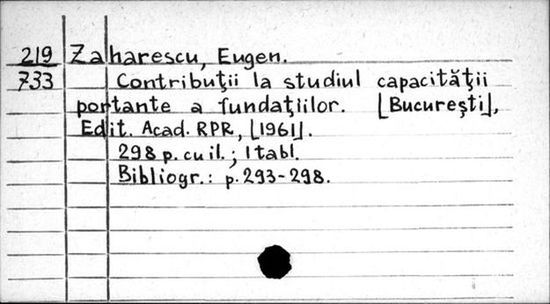 219 Zaharescu, Eugen.
733 Contribuţii la studiul capacităţii
portante a fundaţiilor. [Bucureşti],
Edit. Acad. RPR, [1961].
298 p. cu il.; 1 tabl.
Bibliogr.: p. 293-298.